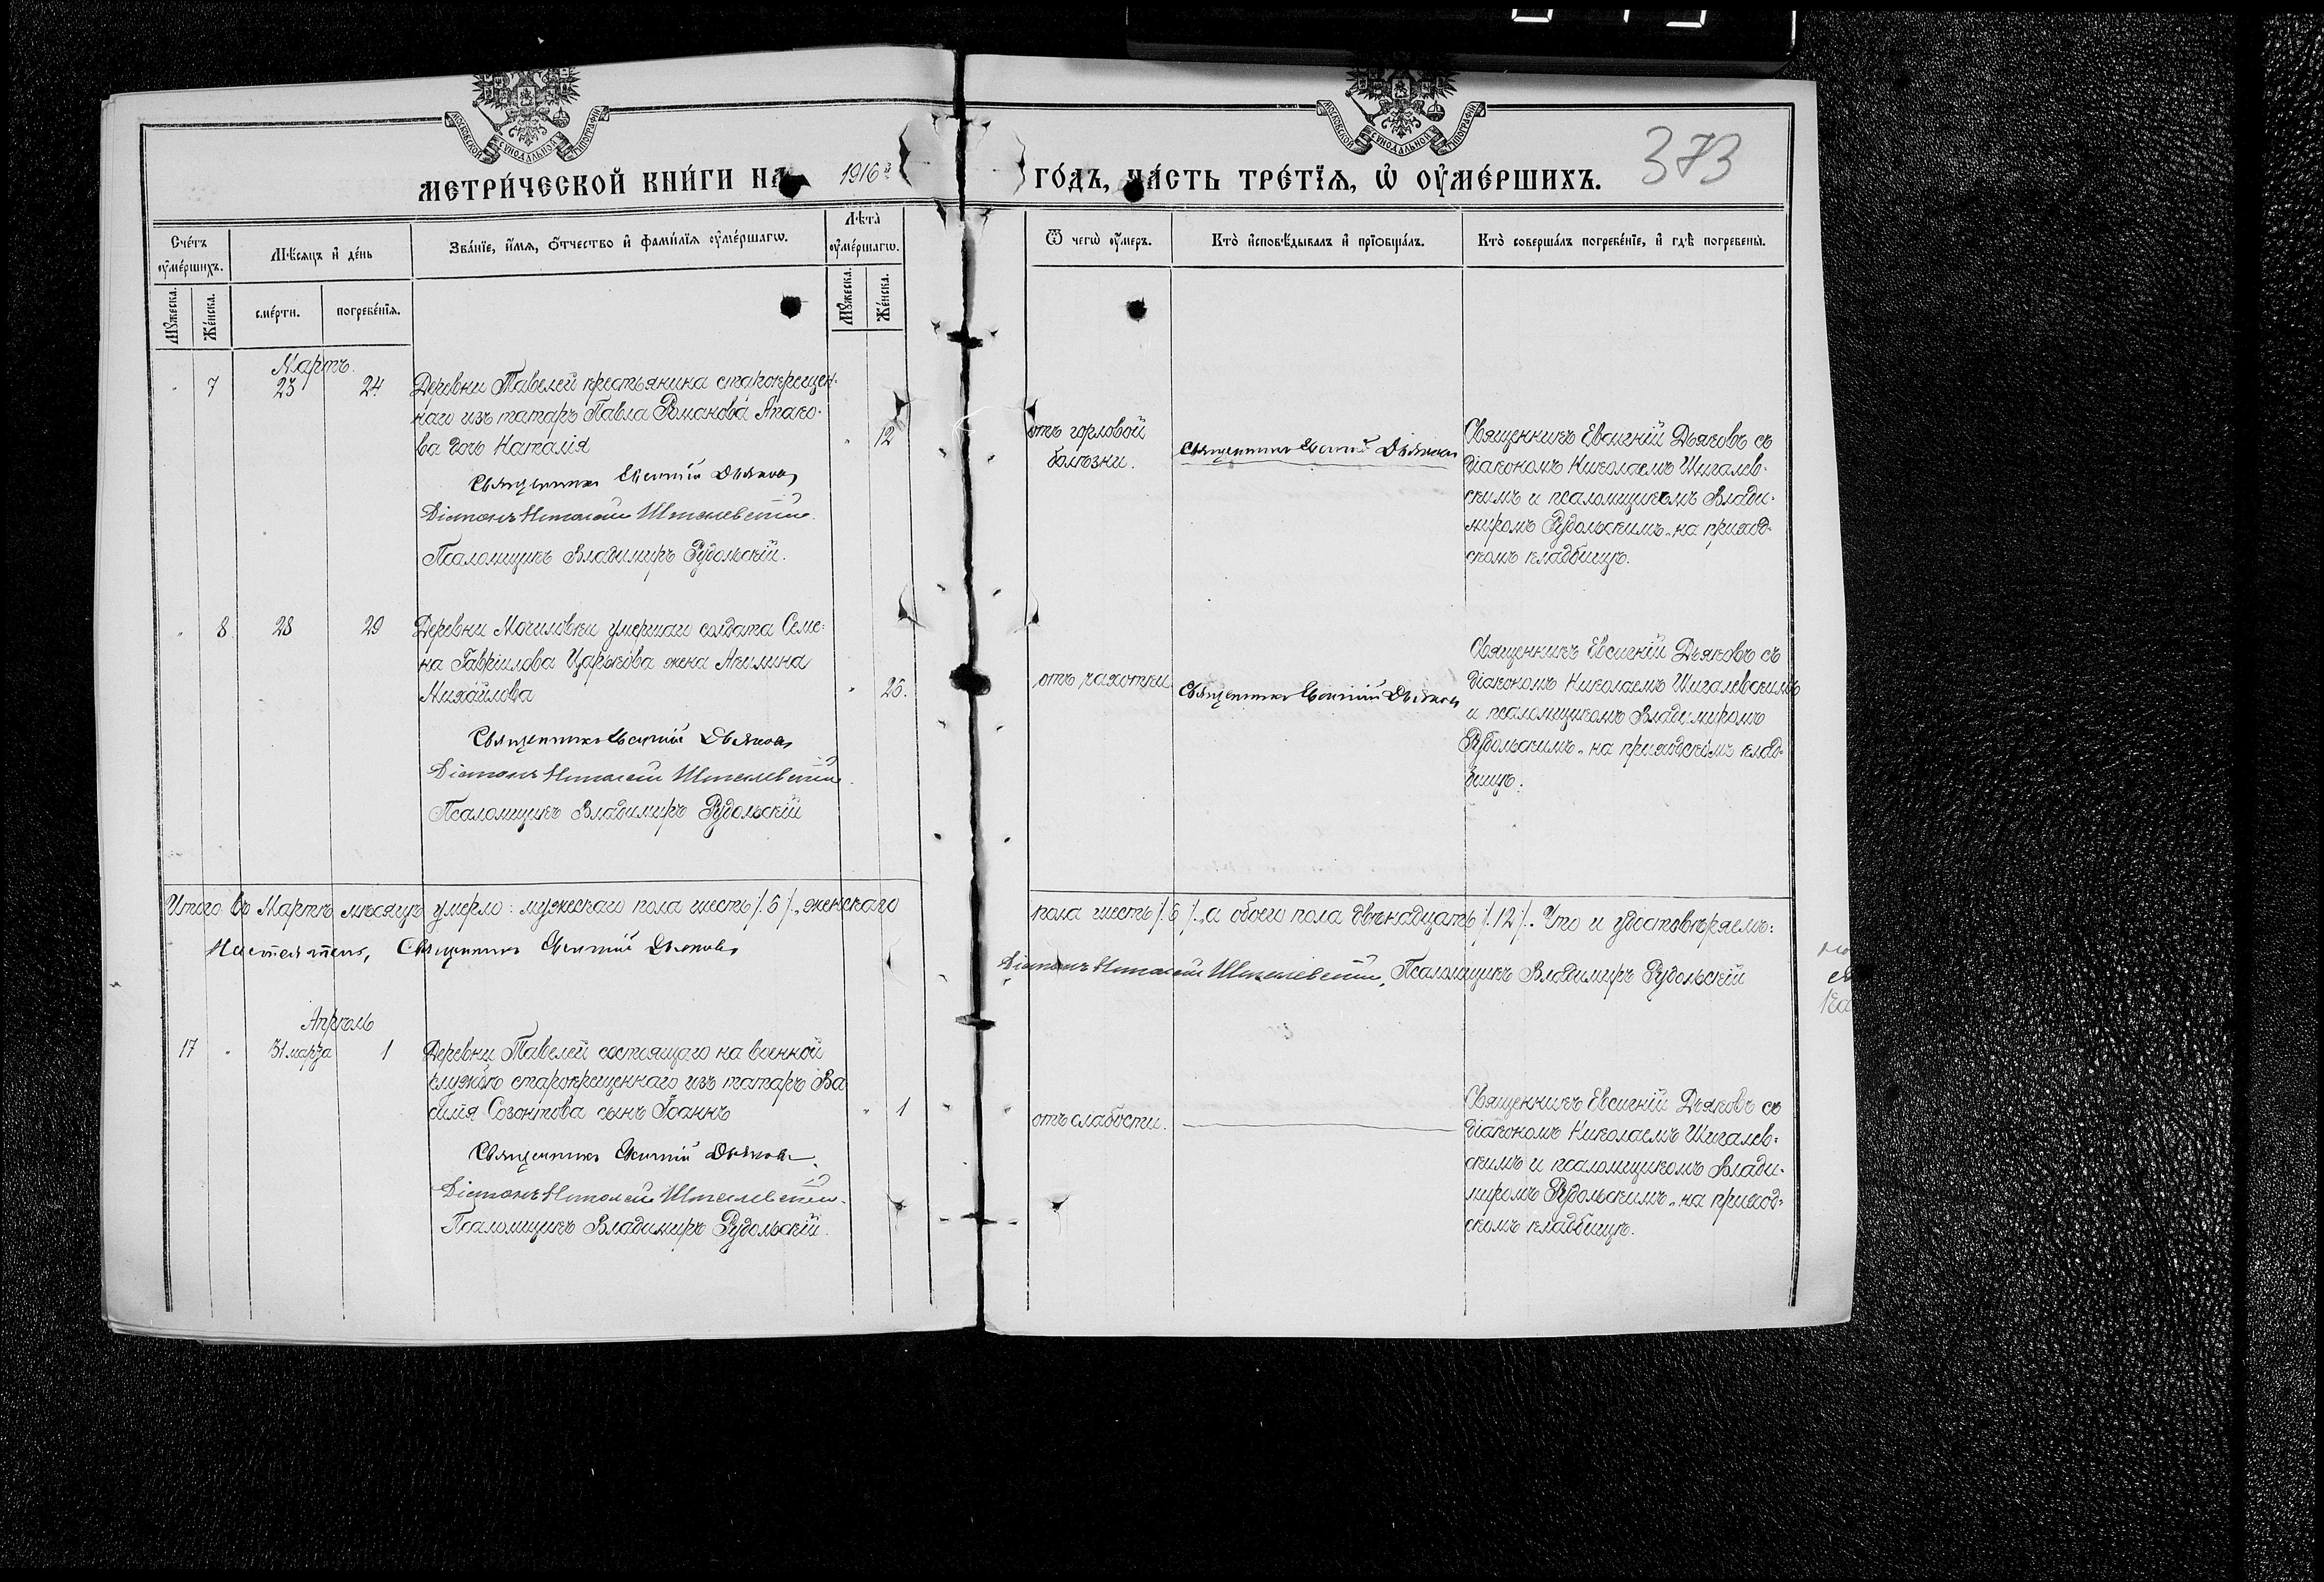 МОСКОВСКОЙ СѴНОДАЛЬНОЙ ТИПОГРАФІИ
МОСКОВСКОЙ СѴНОДАЛЬНОЙ ТИПОГРАФІИ
МЕТРИ́ЧЕСКОЙ КНИ́ГИ НА 1916 ГО́ДЪ, ЧА́СТЬ ТРЕ́ТЇѦ, Ѡ҆ ОУ҆МЕ́РШИХЪ.
373
Сче́тъ оу҆ме́ршихъ.
Мѣ́сяцъ и҆ де́нь
Зва́нїе, и҆́мѧ, ѻ҆́тчество и҆ фами́лїѧ оу҆ме́ршагѡ.
Лѣта̀ оу҆ме́ршагѡ.
Ѿ чегѡ̀ оу҆́меръ.
Кто̀ и҆сповѣ́дывалъ и҆ прїѡбща́лъ.
Кто̀ соверша́лъ погребе́нїе, и҆ гдѣ̀ погребены̀.
Мꙋ́жеска.
Же́нска.
сме́рти.
погребе́нїѧ.
Мꙋ́жеска.
Же́нска.
Мартъ.
7 23 24 Деревни Тавелей крестьянина старокрещен-
наго изъ татаръ Павла Романова Апако-
ва дочь Наталія 12
Священникъ Евсигній Дьяковъ
Діаконъ Николай Шигалевскій.
Псаломщикъ Владимиръ Рудольскій.
отъ горловой
болѣзни.
Священникъ Евсигній Дьяковъ
Священникъ Евсигній Дьяковъ съ
діакономъ Николаемъ Шигалев-
скимъ и псаломщикомъ Влади-
миромъ Рудольскимъ, на приход-
скомъ кладбищѣ.
8 28 29 Деревни Могиловки умершаго солдата Семе-
на Гавріилова Царькова жена Акилина
Михайлова 25.
Священникъ Евсигній Дьяковъ
Діаконъ Николай Шигалевскій.
Псаломщикъ Владимиръ Рудольскій
отъ чахотки
Священникъ Евсигній Дьяковъ
Священникъ Евсигній Дьяковъ съ
діакономъ Николаемъ Шигалевскимъ
и псаломщикомъ Владимиромъ
Рудольскимъ, на приходскомъ клад-
бищѣ.
Итого въ Мартѣ мѣсяцѣ умерло: мужескаго пола шесть /.6/., женскаго
пола шесть /.6/., а обоего пола двѣнадцать /.12/. Что и удостовѣряемъ:
Настоятель, Священникъ Евсигній Дьяковъ
Діаконъ Николай Шигалевскій, Псаломщикъ Владимиръ Рудольскій
Апрѣль
17 31 марта 1 Деревни Тавелей состоящаго на военной
службѣ старокрещеннаго изъ татаръ Ва-
силія Созонтова сынъ Іоаннъ 1
Священникъ Евсигній Дьяковъ.
Діаконъ Николай Шигалевскій.
Псаломщикъ Владимиръ Рудольскій.
отъ слабости.
Священникъ Евсигній Дьяковъ съ
діакономъ Николаемъ Шигалев-
скимъ и псаломщикомъ Влади-
миромъ Рудольскимъ, на приход-
скомъ кладбищѣ.